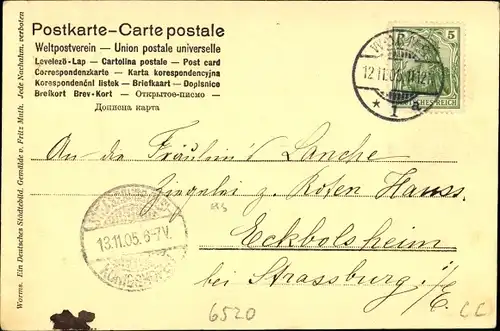 Postkarte-Carte postale
Weltpostverein — Union postale universelle
Levelező-Lap — Cartolina postale — Post card
Correspondenzkarte — Karta korespondencyjna
Korespondenční lístek — Briefkaart — Dopisnice
Brefkort Brev-Kort — Открытое-письмо —
Дописна карта
5
DEUTSCHES REICH
WORMS
12.11.05.
* 1 a.
An die Fräulein's Lanche
Ziegelei z. Roten Hauss.
Eckbolsheim
bei Strassburg i/E.
13.11.05. 6-7V.
6520
CC
Worms. Ein Deutsches Städtebild. Gemälde v. Fritz Muth. Jede Nachahm. verboten